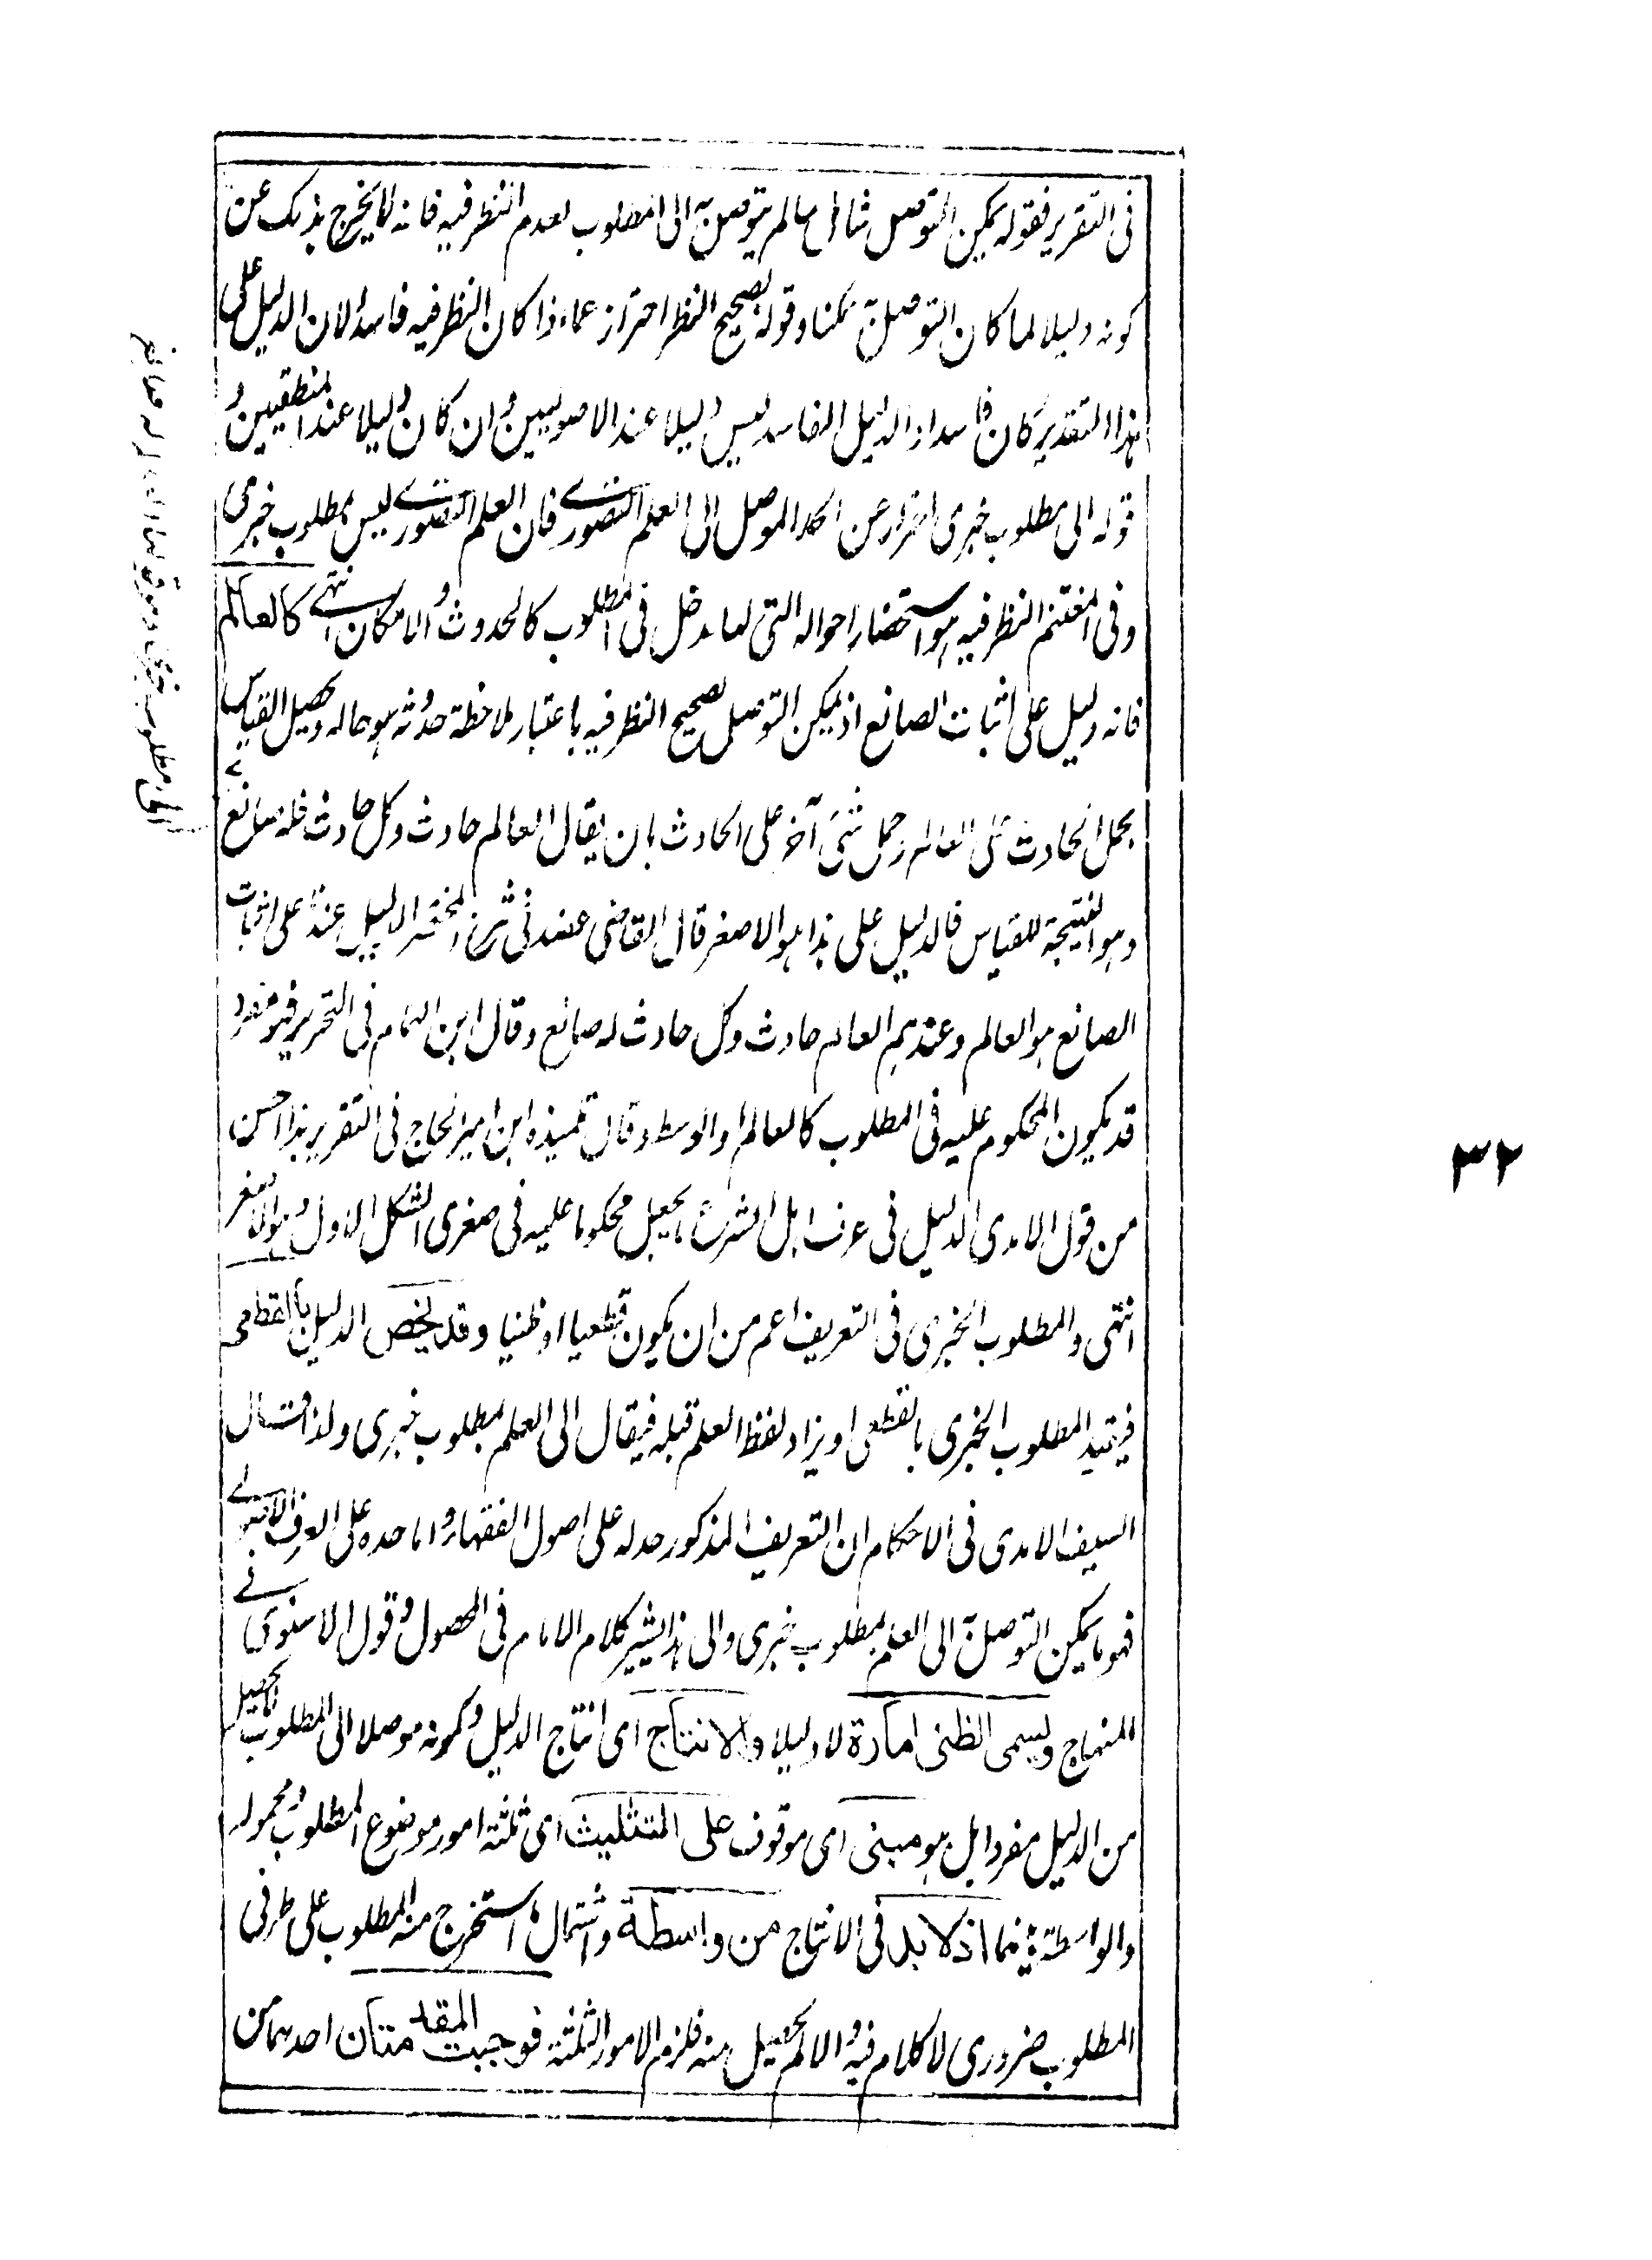 فى التقرير فقوله يمكن التوصل شامل ما لم يتوصل به الى المطلوب لعدم النظر فيه فانه لا يخرج بذلك عن
كونه دليلا لما كان التوصل به ممكنا وقوله بصحيح النظر احتراز عما اذا كان النظر فيه فاسدا لان الدليل على
هذا التقدير كان فاسدا والدليل الفاسد ليس دليلا عند الاصوليين وان كان دليلا عند المنطقيين و
قوله الى مطلوب خبرى احتراز عن الحد الموصل الى العلم التصورى فان العلم التصورى ليس بمطلوب خبرى
وفى المغتنم النظر فيه هو استحضار احواله التى لها دخل فى المطلوب كالحدوث والامكان انتهى كالعالم
فانه دليل على اثبات الصانع اذ يمكن التوصل بصحيح النظر فيه باعتبار ملاحظة حدوثه هو حاله وتحصيل القياس
بحمل الحادث على العالم وحمل شئ آخر على الحادث بان يقال العالم حادث وكل حادث فله صانع
وهو النتيجة للقياس فالدليل على هذا هو الاصغر قال القاضى عضد فى شرح المختصر الدليل عندنا على اثبات
الصانع هو العالم وعندهم العالم حادث وكل حادث له صانع وقال ابن الهمام فى التحرير فهو مفرد
قد يكون المحكوم عليه فى المطلوب كالعالم او الوسط وقال تلميذه ابن امير الحاج فى التقرير هذا احسن
من قول الامدى الدليل فى عرف اهل الشرع ما يجعل محكوما عليه فى صغرى الشكل الاول وهو الاصغر
انتهى والمطلوب الخبرى فى التعريف اعم من ان يكون قطعيا او ظنيا وقد يخص الدليل بالقطعى
فيقيد المطلوب الخبرى بالقطعى او يزاد لفظ العلم قبله فيقال الى العلم بمطلوب خبرى ولذا قال
السيف الامدى فى الاحكام ان التعريف المذكور حد له على اصول الفقهاء واما حده على العرف الاصولى
فهو ما يمكن التوصل به الى العلم بمطلوب خبرى والى هذا يشير كلام الامام فى المحصول وقول الاسنوى فى
المنهاج ويسمى الظنى امارة لا دليلا والانتاج اى انتاج الدليل وكونه موصلا الى المطلوب لا يحصل
من الدليل مفردا بل هو مبنى اى موقوف على التثليث اى ثلثة امور موضوع المطلوب ومحموله
والواسطة بينهما اذ لا بد فى الانتاج من واسطة واشتمال ما استخرج منه المطلوب على طرفى
المطلوب ضرورى لا كلام فيه والا لم يحصل منه فلزم الامور الثلثة فوجبت المقدمتان احدهما من
الى مطلوب خبرى
٣٢